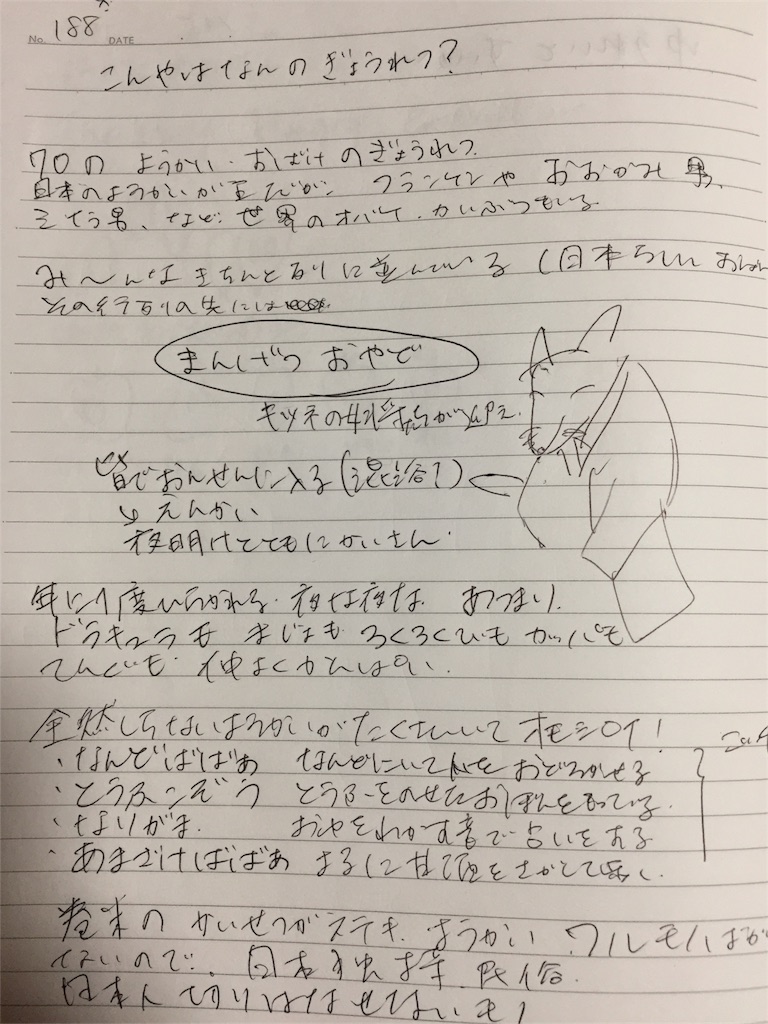 No. 188 DATE
こんやはなんのぎょうれつ?
70の ようかい・おばけのぎょうれつ
日本のようかいが主だが、フランケンや おおかみ男、
ぞう男、など 世界のオバケ、かいぶつもいる
み〜んな きちんと列に並んでいる (日本らしい
その行列の先には
まんげつ おやど
キツネの女将が
皆でおんせんに入る (混浴?)
↳ えんかい
夜明けとともにかいさん
年に1度ひらかれる 夜な夜な あつまり、
ドラキュラも まじょも ろくろくびも カッパも
てんぐも 仲よくかんぱい、
全然しらないようかいがたくさんいて オモシロイ!
・なんどばばぁ なんどにいて人をおどろかせる
・とうふこぞう とうふをのせたおぼんをもっている
・なりがま おゆをわかす音で占いをする
・あまざけばばぁ よるに甘酒を
巻末の かいせつがステキ ようかい ワルモノばか
ないので、
日本人 切りはなせないモノ